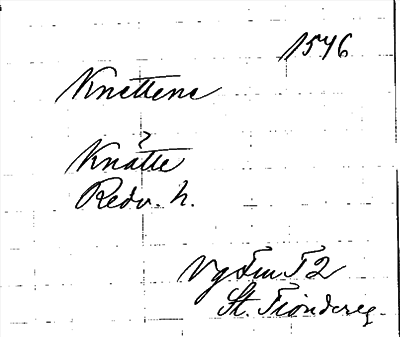 1546
Knettene
?
Knätte
Redv. h.
Vg Fm T 2
St. Tiondereg.